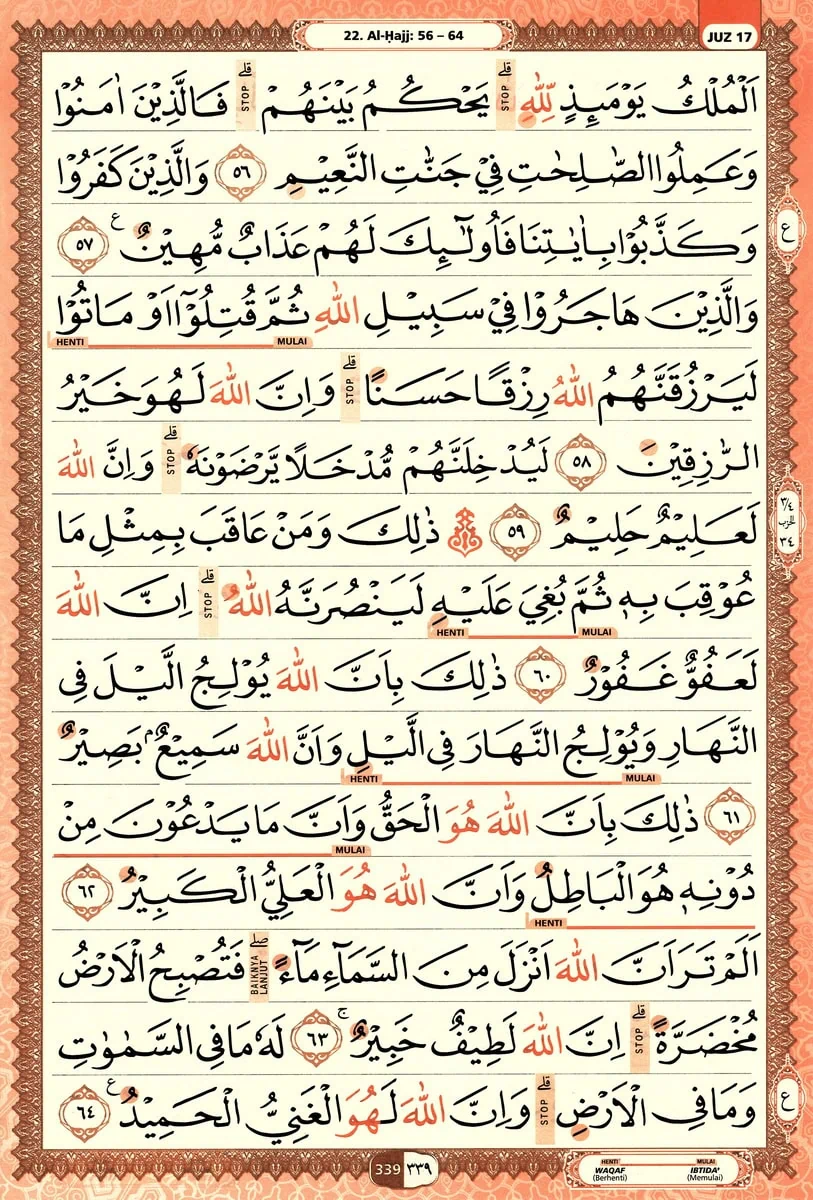 22. Al-Ḥajj: 56 – 64
JUZ 17
اَلْمُلْكُ يَوْمَىِٕذٍ لِّلّٰهِ ۗ STOP يَحْكُمُ بَيْنَهُمْ ۗ STOP فَالَّذِيْنَ اٰمَنُوْا
وَعَمِلُوا الصّٰلِحٰتِ فِيْ جَنّٰتِ النَّعِيْمِ ٥٦ وَالَّذِيْنَ كَفَرُوْا
وَكَذَّبُوْا بِاٰيٰتِنَا فَاُولٰۤىِٕكَ لَهُمْ عَذَابٌ مُّهِيْنٌ ࣖ ٥٧
ع
وَالَّذِيْنَ هَاجَرُوْا فِيْ سَبِيْلِ اللّٰهِ ثُمَّ قُتِلُوْٓا اَوْ مَاتُوْا
MULAI HENTI
لَيَرْزُقَنَّهُمُ اللّٰهُ رِزْقًا حَسَنًا ۗ STOP وَاِنَّ اللّٰهَ لَهُوَ خَيْرُ
الرّٰزِقِيْنَ ٥٨ لَيُدْخِلَنَّهُمْ مُّدْخَلًا يَّرْضَوْنَهٗ ۗ STOP وَاِنَّ اللّٰهَ
لَعَلِيْمٌ حَلِيْمٌ ٥٩ ۞ ذٰلِكَ وَمَنْ عَاقَبَ بِمِثْلِ مَا
٣/٤ الحزب ٣٤
عُوْقِبَ بِهٖ ثُمَّ بُغِيَ عَلَيْهِ لَيَنْصُرَنَّهُ اللّٰهُ ۗ STOP اِنَّ اللّٰهَ
MULAI HENTI
لَعَفُوٌّ غَفُوْرٌ ٦٠ ذٰلِكَ بِاَنَّ اللّٰهَ يُوْلِجُ الَّيْلَ فِى
النَّهَارِ وَيُوْلِجُ النَّهَارَ فِى الَّيْلِ وَاَنَّ اللّٰهَ سَمِيْعٌۢ بَصِيْرٌ
MULAI HENTI
٦١ ذٰلِكَ بِاَنَّ اللّٰهَ هُوَ الْحَقُّ وَاَنَّ مَا يَدْعُوْنَ مِنْ
MULAI
دُوْنِهٖ هُوَ الْبَاطِلُ وَاَنَّ اللّٰهَ هُوَ الْعَلِيُّ الْكَبِيْرُ ٦٢
HENTI
اَلَمْ تَرَ اَنَّ اللّٰهَ اَنْزَلَ مِنَ السَّمَاۤءِ مَاۤءً ۖ BAIKNYA LANJUT فَتُصْبِحُ الْاَرْضُ
مُخْضَرَّةً ۗ STOP اِنَّ اللّٰهَ لَطِيْفٌ خَبِيْرٌ ۚ ٦٣ لَهٗ مَا فِى السَّمٰوٰتِ
وَمَا فِى الْاَرْضِ ۗ STOP وَاِنَّ اللّٰهَ لَهُوَ الْغَنِيُّ الْحَمِيْدُ ࣖ ٦٤
ع
339 ٣٣٩
HENTI MULAI
WAQAF IBTIDA'
(Berhenti) (Memulai)